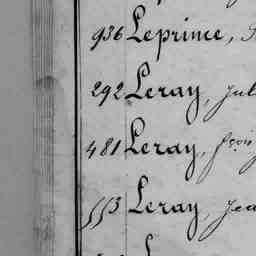 936 Leprince,
292 Leray, Jul
481 Leray, fçois
553 Leray, Jea